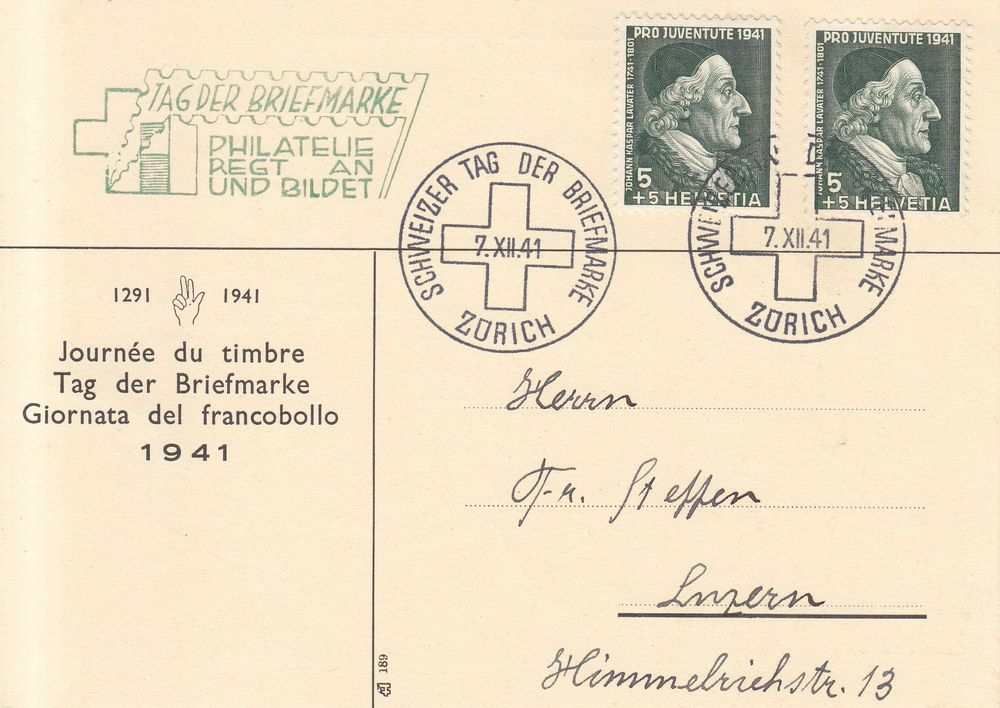 TAG DER BRIEFMARKE
PHILATELIE
REGT AN
UND BILDET
PRO JUVENTUTE 1941
JOHANN KASPAR LAVATER 1741-1801
5
+5 HELVETIA
PRO JUVENTUTE 1941
JOHANN KASPAR LAVATER 1741-1801
5
+5 HELVETIA
SCHWEIZER TAG DER BRIEFMARKE
7.XII.41
ZÜRICH
SCHWEIZER TAG DER BRIEFMARKE
7.XII.41
ZÜRICH
1291 1941
Journée du timbre
Tag der Briefmarke
Giornata del francobollo
1941
Herrn
Fr. Steffen
Luzern
Himmelrichstr. 13
189